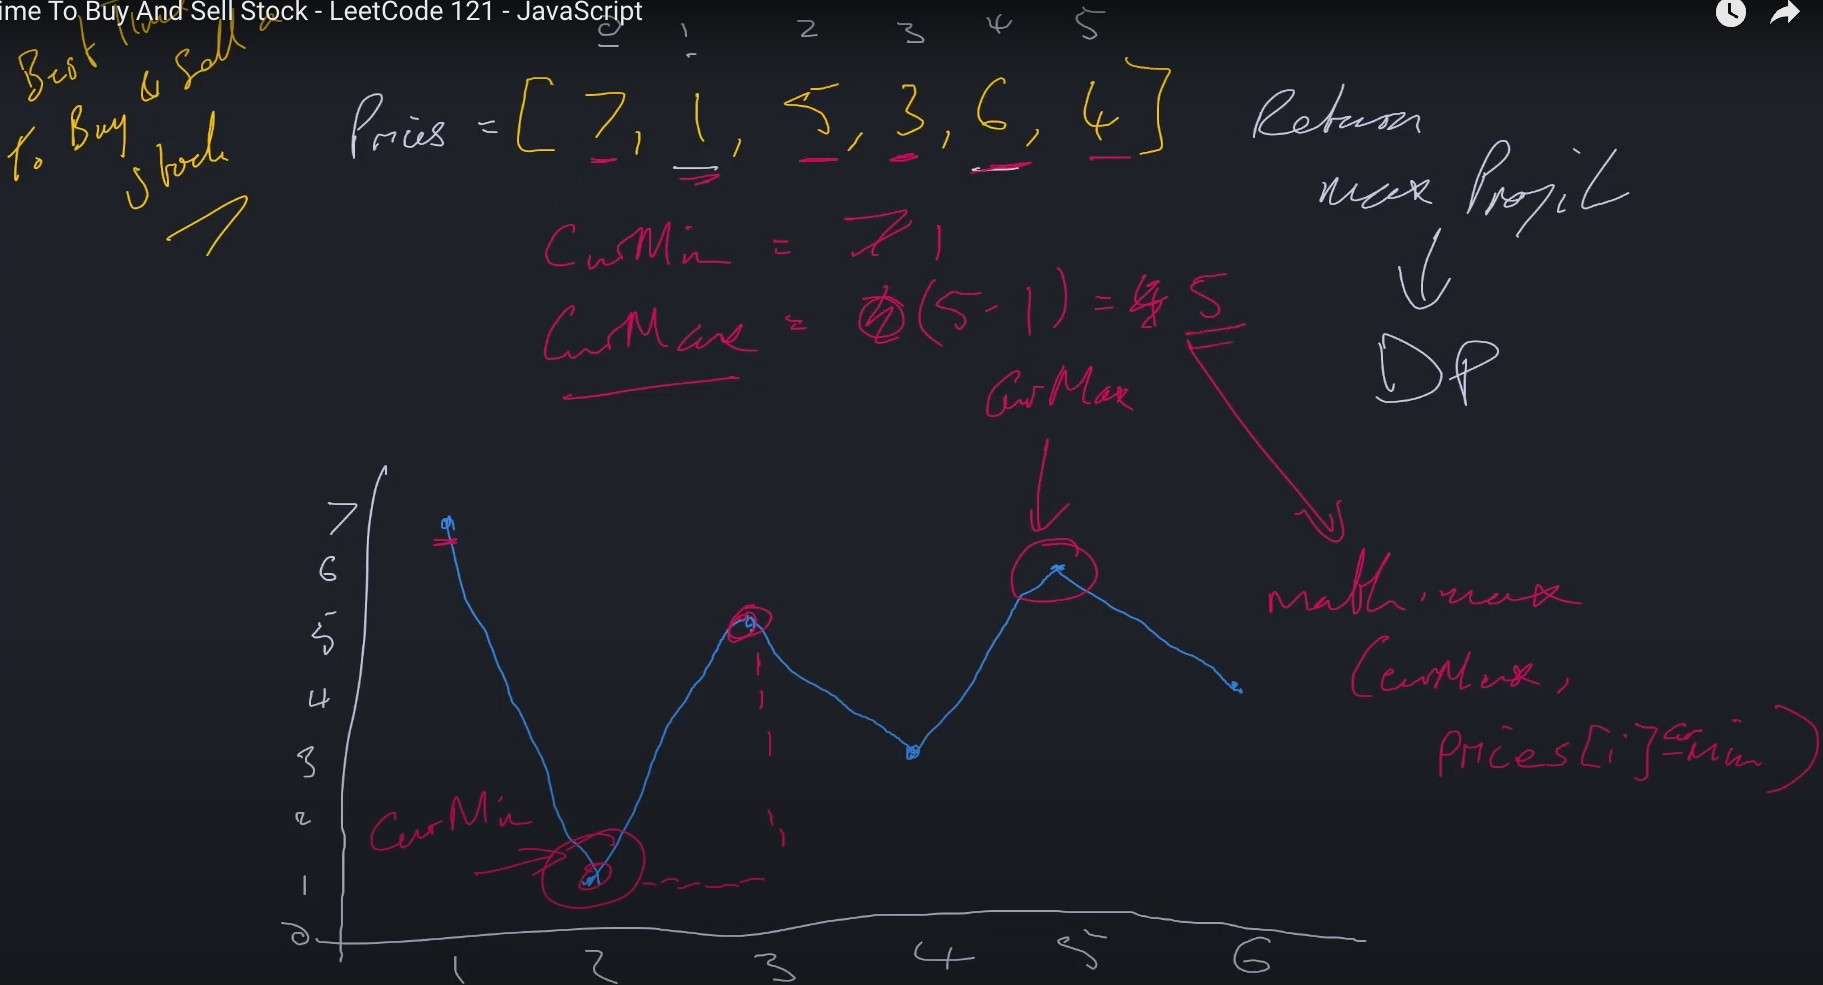 ime To Buy And Sell Stock - LeetCode 121 - JavaScript
Best Time
To Buy & Sell a
Stock
0 1 2 3 4 5
Prices = [7, 1, 5, 3, 6, 4]
Return
max Profit
DP
CurMin = 7 1
CurMax = (5-1) = 4 5
CurMax
math.max
(curMax,
Prices[i] - curMin)
CurMin
7
6
5
4
3
2
1
0
1 2 3 4 5 6